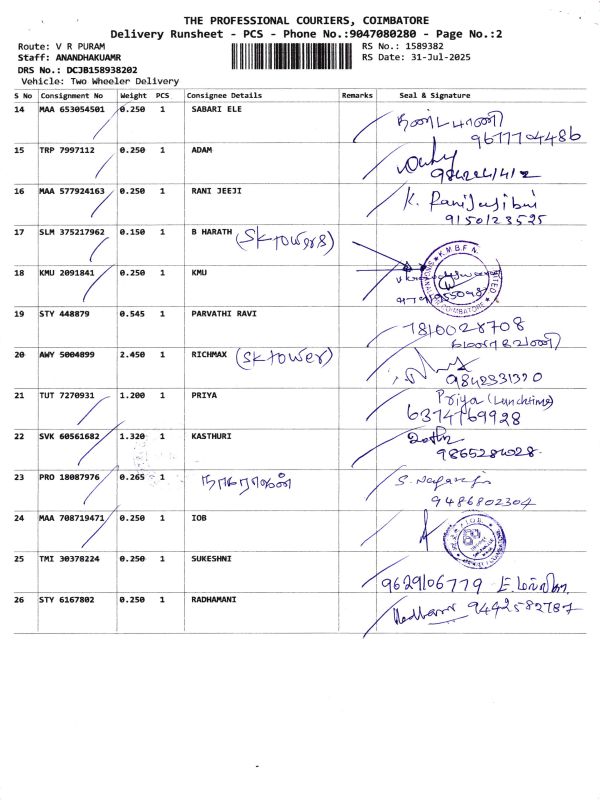 THE PROFESSIONAL COURIERS, COIMBATORE
Delivery Runsheet - PCS - Phone No.:9047080280 - Page No.:2
Route: V R PURAM
RS No.: 1589382
Staff: ANANDHAKUAMR
RS Date: 31-Jul-2025
DRS No.: DCJB158938202
Vehicle: Two Wheeler Delivery
S No Consignment No Weight PCS Consignee Details Remarks Seal & Signature
14 MAA 653054501 0.250 1 SABARI ELE
9677704486
15 TRP 7997112 0.250 1 ADAM
16 MAA 577924163 0.250 1 RANI JEEJI K. Ranijeejibai
9150123525
17 SLM 375217962 0.150 1 B HARATH (SK towers)
18 KMU 2091841 0.250 1 KMU K.M.B.F.N. COIMBATORE
19 STY 448879 0.545 1 PARVATHI RAVI 7810028708
20 AWY 5004899 2.450 1 RICHMAX (SK tower)
9842331320
21 TUT 7270931 1.200 1 PRIYA Priya (Lunchtime)
6374769928
22 SVK 60561682 1.320 1 KASTHURI
9865284028
23 PRO 18087976 0.265 1 நாகராஜன் S. Nagaraj
9486802304
24 MAA 708719471 0.250 1 IOB I.O.B.
25 TMI 30378224 0.250 1 SUKESHNI
9629106779
26 STY 6167802 0.250 1 RADHAMANI 9442582787